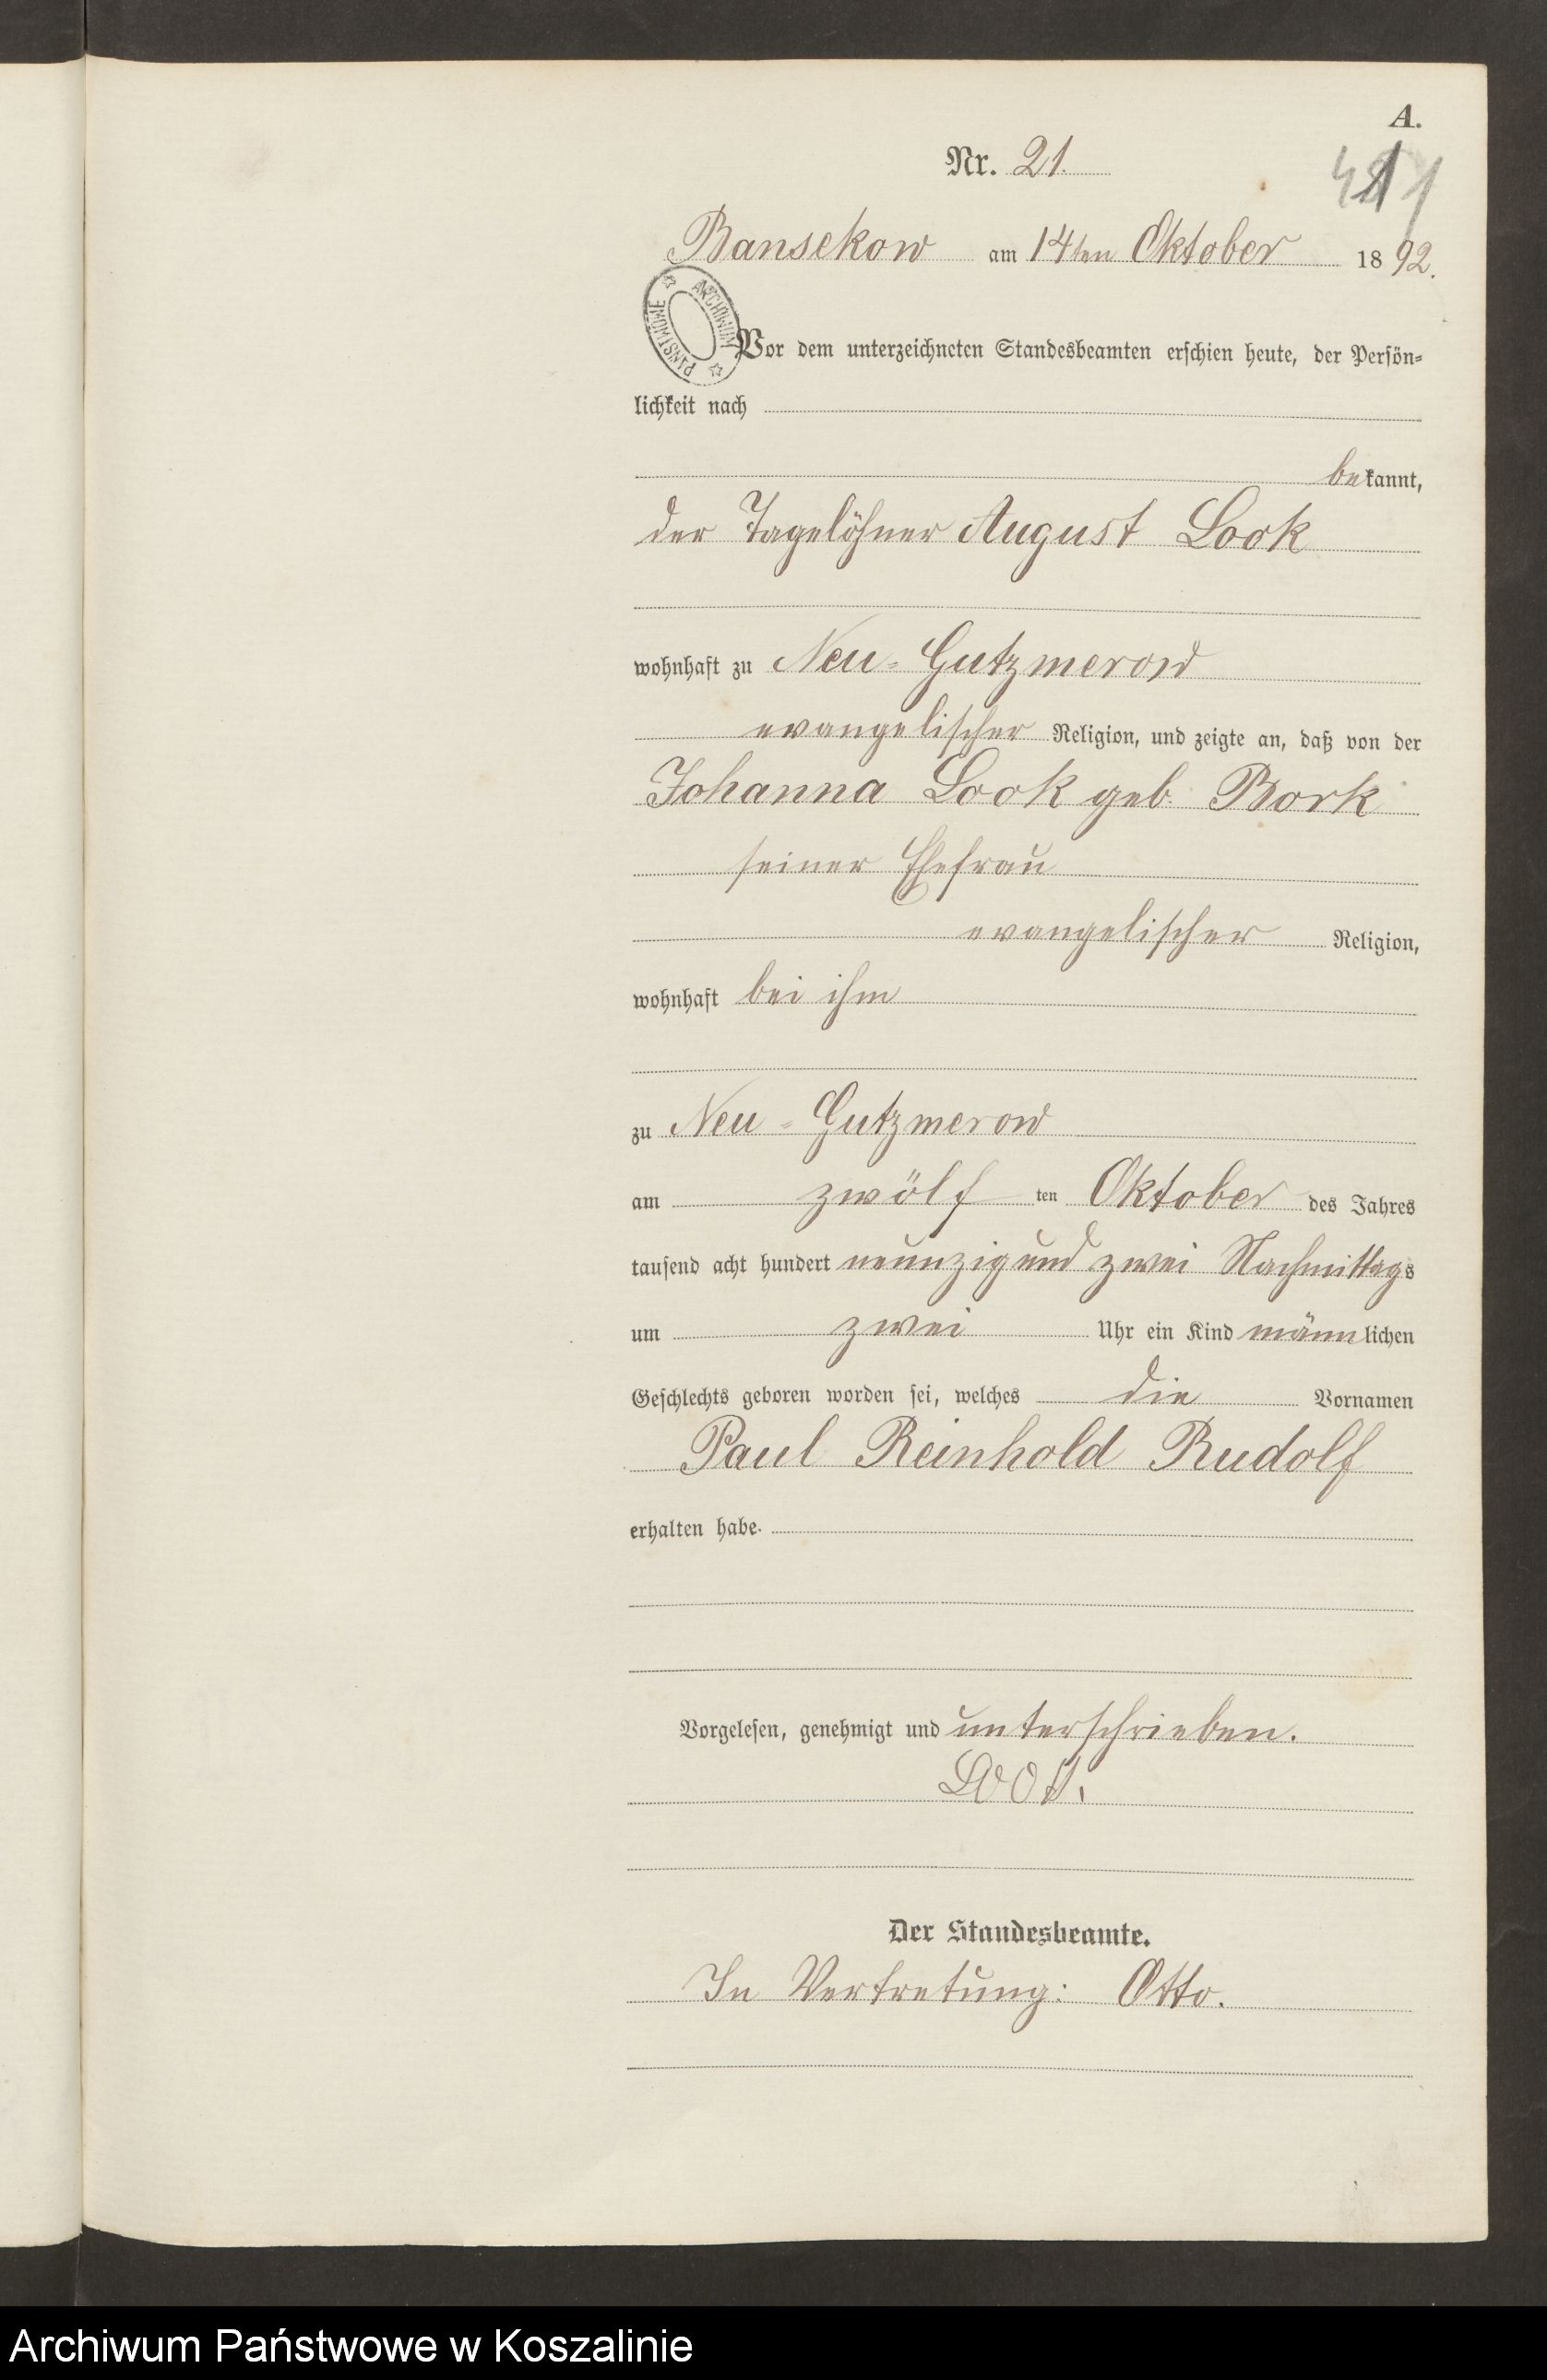 A.
Nr. 21.
Bansekow am 14ten Oktober 1892.
ARCHIWUM PAŃSTWOWE
Vor dem unterzeichneten Standesbeamten erschien heute, der Persön-
lichkeit nach
bekannt,
der Tagelöhner August Look
wohnhaft zu Neu-Gutzmerow
evangelischer Religion, und zeigte an, daß von der
Johanna Look geb. Bork
seiner Ehefrau
evangelischer Religion,
wohnhaft bei ihm
zu Neu-Gutzmerow
am zwölf ten Oktober des Jahres
tausend acht hundert neunzig und zwei Nachmittags
um zwei Uhr ein Kind männlichen
Geschlechts geboren worden sei, welches die Vornamen
Paul Reinhold Rudolf
erhalten habe.
Vorgelesen, genehmigt und unterschrieben.
Look.
Der Standesbeamte.
In Vertretung: Otto.
Archiwum Państwowe w Koszalinie